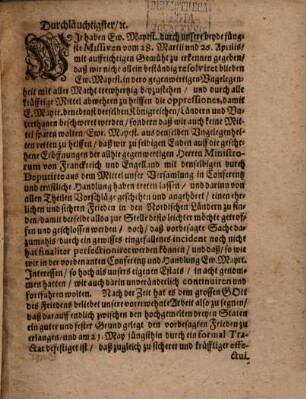 Durchläuchtigster/ꝛc.
Je haben Ew. Mayest. durch unsere beyde jüng-
ste Missiven vom 28. Martii und 26. Aprilis/
mit auffrichtigen Gemüht zu erkennen gegeben/
daß wir nicht allein beständig resolviret blieben
Ew. Mayest. in den gegenwertigen Ungelegen-
heit mit aller Macht trewhertzig beyzustehen/ und durch alle
kräfftige Mittel abwehren zu helffen die oppressiones, damit
E. Mayest. benebenst derselben Königreichen/ Ländern und Un-
terthanen beschweret werden/ sondern daß wir auch keine Mü-
he sparen wolten/ Ew. Mayest. aus denselben Ungelegenhei-
ten retten zu helffen/ wie wir zu selbigen Enden auff die gesche-
hene Eröffnungen der alhie gegenwertigen Herren Ministro-
rum von Franckreich und Engelland mit denselbigen durch
Deputirte aus dem Mittel unser Versamlung in Conferentz
und ernstliche Handlung haben treten lassen/ und darinn von
allen Theilen Vorschläge geschehen und angehöret/ einen ehr-
lichen und sichern Frieden in den Nordischen Ländern zu fin-
den/ damit derselbe alda zur Stelle desto leichter möchte getrof-
fen und geschlossen werden/ doch/ daß vorbesagte Sache da-
zumahls/ durch ein gewisses eingefallenes incident noch nicht
hat finaliter perfectioniret werden können/ und daß/ so wie
wir in der vorbenanten Conferentz und Handlung Ew. Mayest.
Interessen/ so hoch als unsers eigenen Estats/ in acht genom-
men hatten/ wie auch darin unveränderlich continuiren und
fortfahren wolten. Nach der Zeit hat es dem grossen GOtt
des Friedens beliebet unsere vorerwehnte Arbeit also zu segnen/
daß darauff endlich zwischen den hochgemelten dreyen Staten
ein guter und fester Grund gelegt den vorbesagten Frieden zu
erlangen/ und am 21. May jüngsthin durch ein formal Tra-
ctat befestiget ist/ daß zugleich zu sicherer und kräfftiger effe-
ctui-